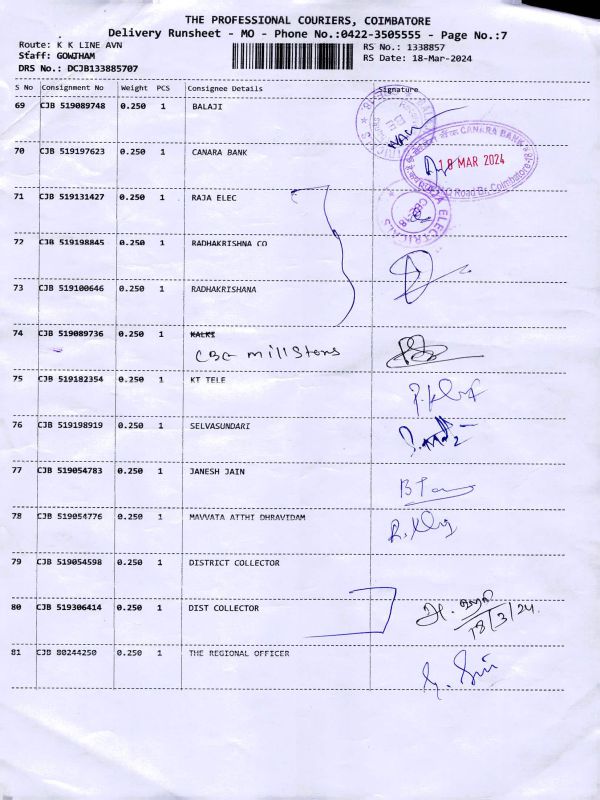 THE PROFESSIONAL COURIERS, COIMBATORE
Delivery Runsheet - MO - Phone No.:0422-3505555 - Page No.:7
Route: K K LINE AVN
Staff: GOWTHAM
DRS No.: DCJB133885707
RS No.: 1338857
RS Date: 18-Mar-2024
S No Consignment No Weight PCS Consignee Details Signature
69 CJB 519089748 0.250 1 BALAJI
70 CJB 519197623 0.250 1 CANARA BANK
CANARA BANK
18 MAR 2024
Road Br. Coimbatore
71 CJB 519131427 0.250 1 RAJA ELEC
RAJA ELECTRICALS
72 CJB 519198845 0.250 1 RADHAKRISHNA CO
73 CJB 519100646 0.250 1 RADHAKRISHANA
74 CJB 519089736 0.250 1 KALKI
CBE mill Stons
75 CJB 519182354 0.250 1 KT TELE
76 CJB 519198919 0.250 1 SELVASUNDARI
77 CJB 519054783 0.250 1 JANESH JAIN
78 CJB 519054776 0.250 1 MAVVATA ATTHI DHRAVIDAM
79 CJB 519054598 0.250 1 DISTRICT COLLECTOR
80 CJB 519306414 0.250 1 DIST COLLECTOR
18/3/24.
81 CJB 80244250 0.250 1 THE REGIONAL OFFICER